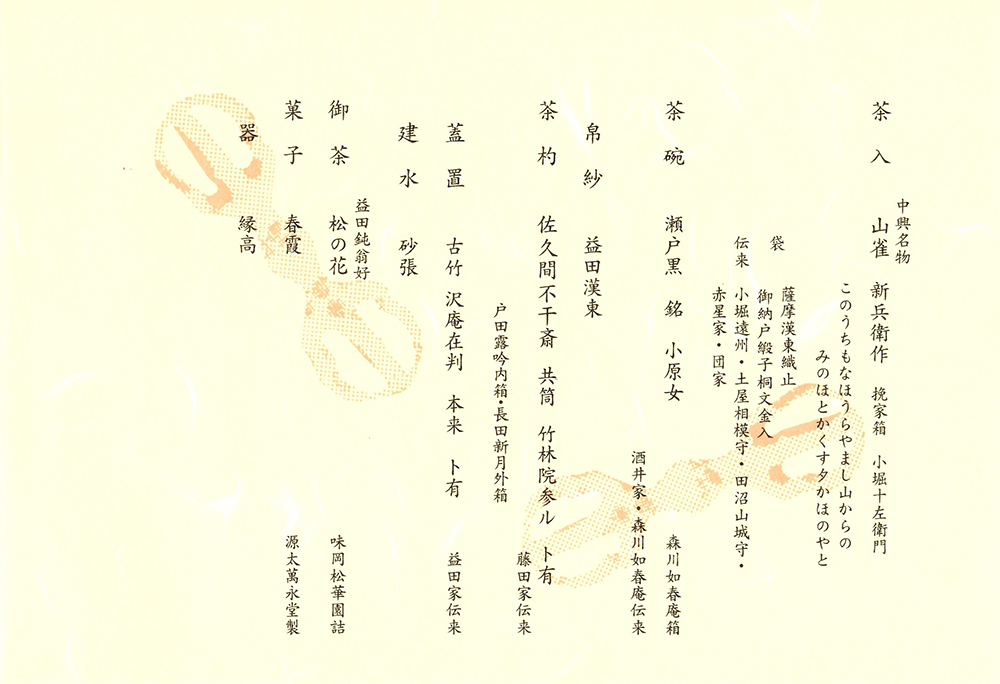 中興名物
茶入 山雀 新兵衛作 挽家箱 小堀十左衛門
このうちもなほうらやまし山からの
みのほとかくす夕かほのやと
袋 薩摩漢東織止
御納戸緞子桐文金入
伝来 小堀遠州・土屋相模守・田沼山城守・
赤星家・団家
茶碗 瀬戸黒 銘 小原女 森川如春庵箱
酒井家・森川如春庵伝来
帛紗 益田漢東
茶杓 佐久間不干斎 共筒 竹林院参ル ト有
藤田家伝来
戸田露吟内箱・長田新月外箱
蓋置 古竹 沢庵在判 本来 ト有 益田家伝来
建水 砂張
益田鈍翁好
御茶 松の花 味岡松華園詰
菓子 春霞 源太萬永堂製
器 縁高